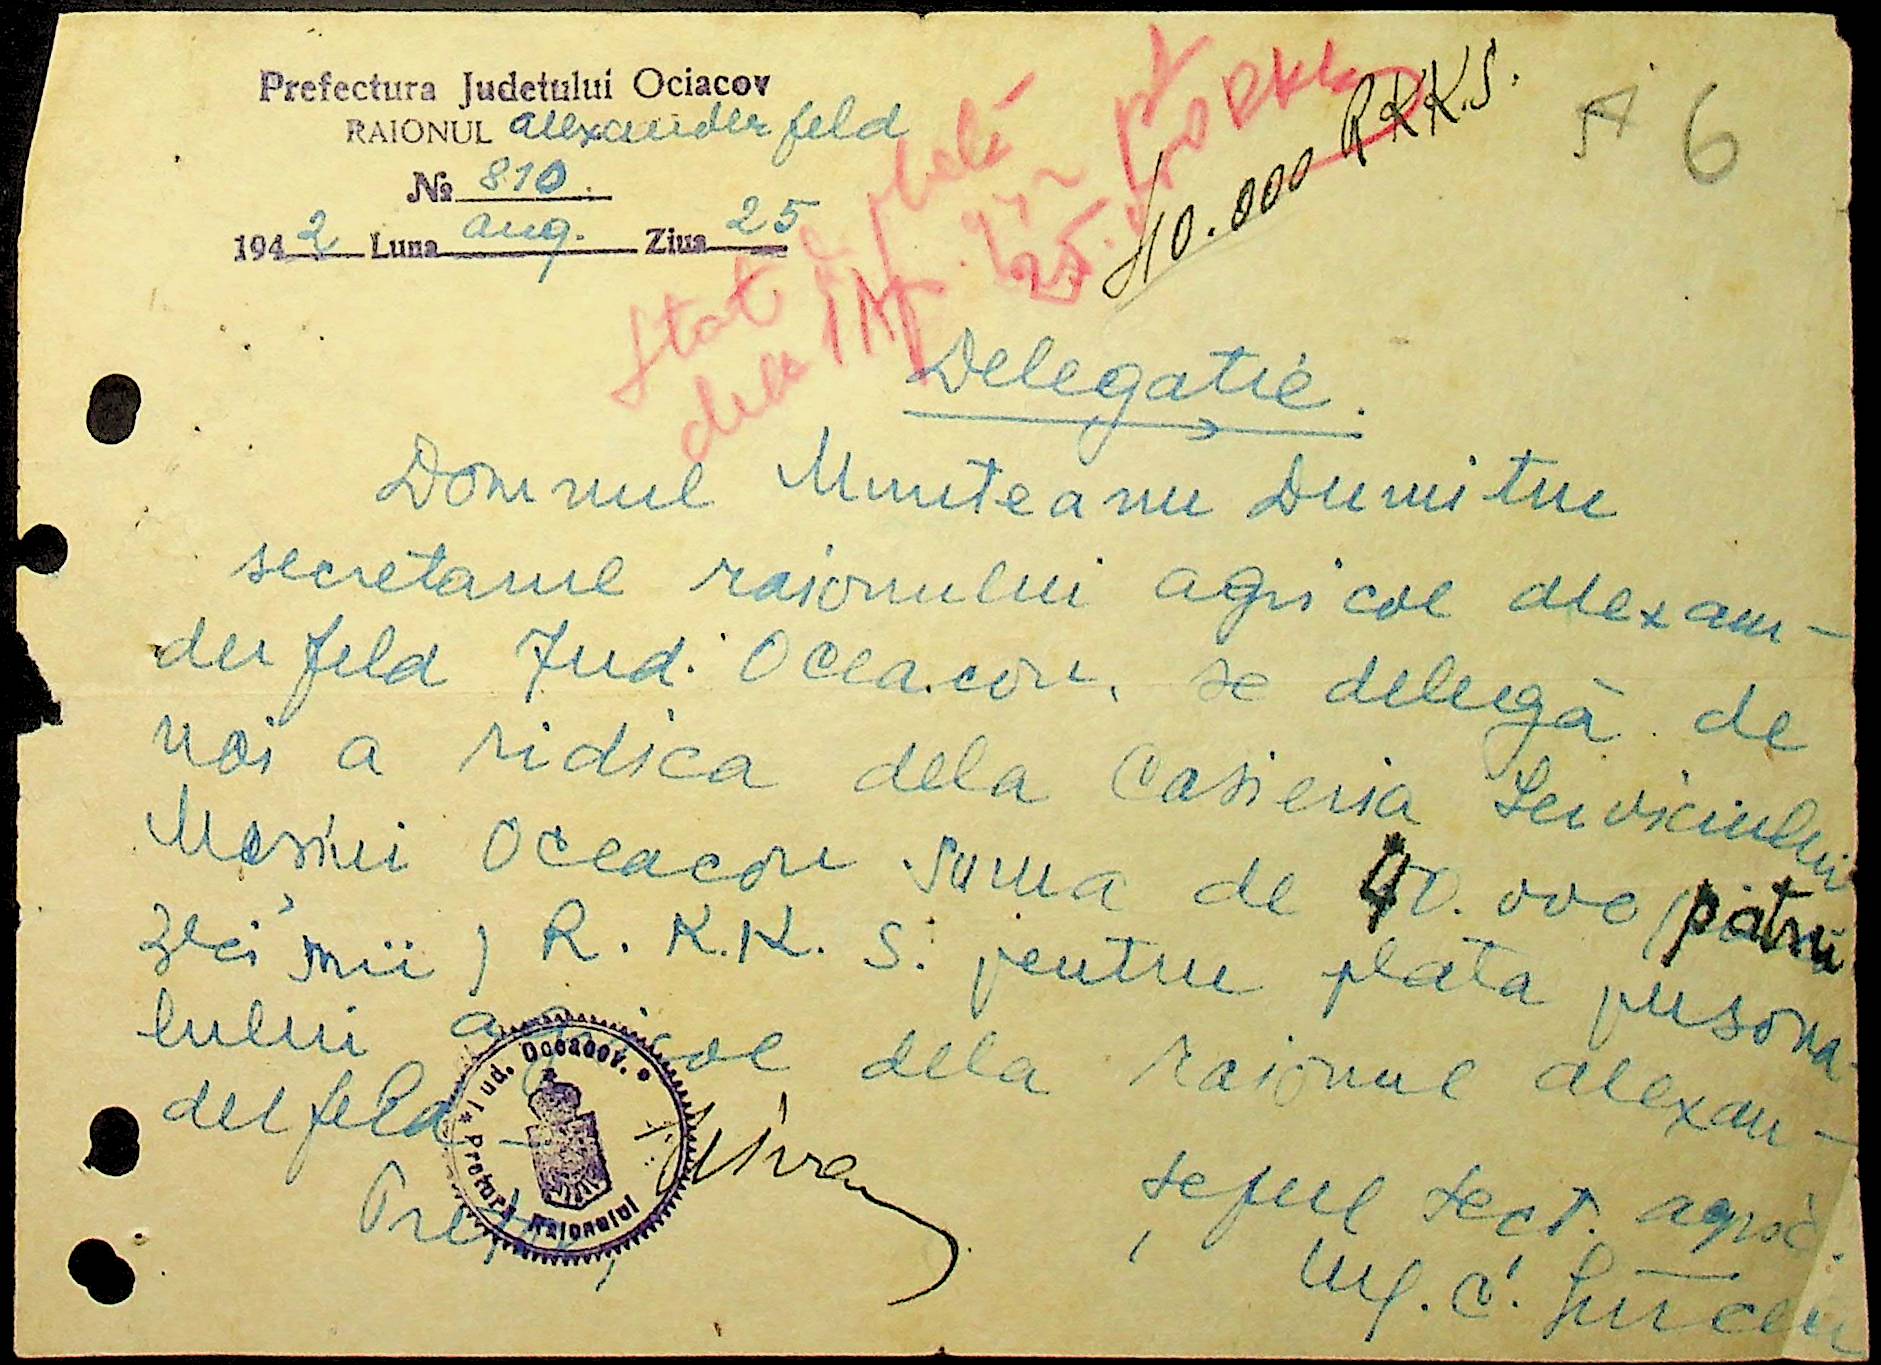 Prefectura Judetului Ociacov
RAIONUL Alexanderfeld
№ 810.
1942 Luna aug. Ziua 25
Stat de plată
dela
25.
40.000 RKKS.
6
Delegatie.
Domnul Munteanu Dumitru
secretarul raionului agricol Alexan-
derfeld Jud. Oceacov, se delegă de
noi a ridica dela Casieria Serviciului
Muncii Oceacov suma de 40.000 (patru
zeci mii) R.K.K.S. pentru plata persona-
lului agricol dela raionul Alexan-
derfeld
Pretor,
Jud. Oceacov.
Pretura Raionului
Șeful sect. agric.
Ing. C.